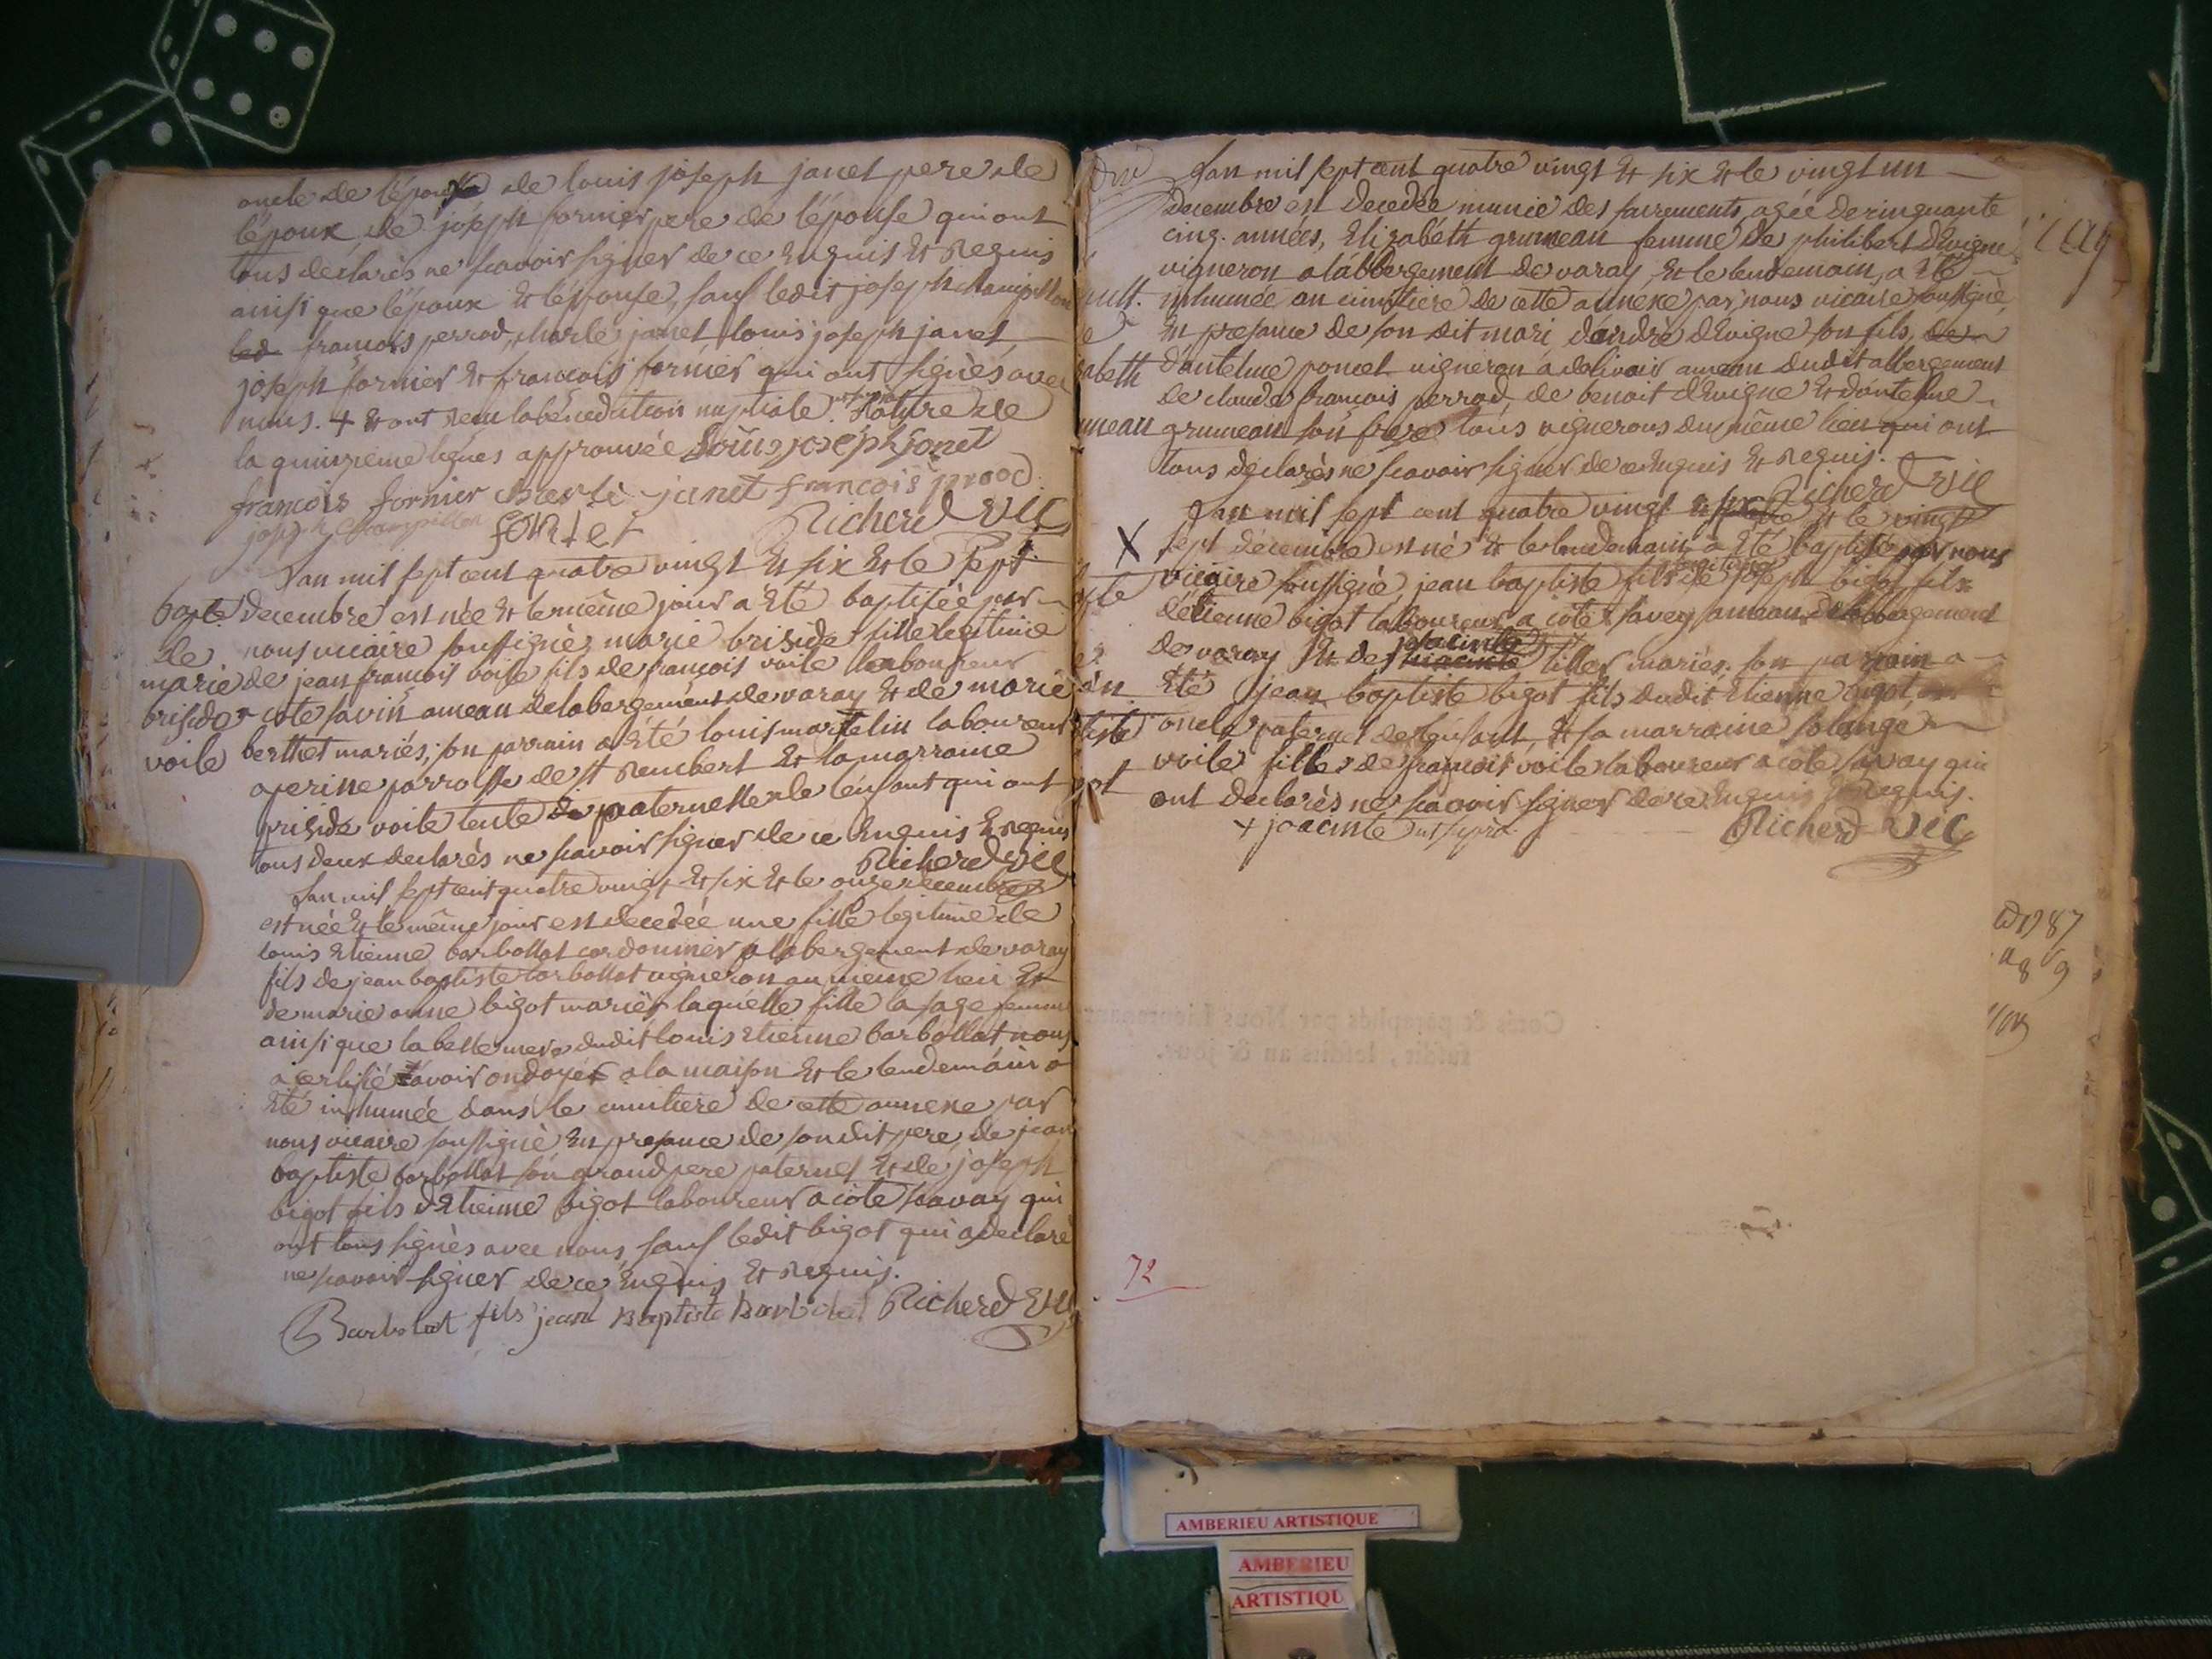 oncle de l'épouse de louis joseph janet pere de
l'époux, de joseph fornier pere de l'épouse qui ont
tous déclarés ne scavoir signer de ce Enquis Et Requis
ainsi que l'époux Et l'épouse, sauf ledit joseph champillon
led françois perrod, charle janet louis joseph janet
joseph fornier Et françois fornier qui ont signés avec
nous. + Et ont Reçu la bénédiction nuptiale. Rature de
la quinzieme lignes approuvée Louis joseph janet
françois fornier charle janet françois perod
joseph champillon fornier Richerd vic
Lan mil sept cent quatre vingt Et six Et le sept
bapt. decembre est née Et le même jour a Eté baptisée par
de nous vicaire soussigné, marie briside fille legitime
marie de jean françois voile fils de françois voile laboureur
briside a cote savin ameau de labergement de varay Et de marie
voile berthet mariés; son parrain a Eté louis martelin laboureur
a perine parroisse de st Rembert Et la marraine
briside voile tente paternelle de l'enfant qui ont
tous deux declarés ne scavoir signer de ce Enquis Et Requis
Richerd vic
Lan mil sept cent quatre vingt Et six Et le onze decembre
est née Et le même jour est decedée une fille legitime de
louis Etienne barbollat cordonnier a labergement de varay
fils de jean baptiste barbollat vigneron au meme lieu Et
de marie anne bigot mariés laquelle fille la sage femme
ainsi que la belle mere dudit louis Etienne barbollat nous
a certifié l'avoir ondoyée a la maison Et le lendemain a
Eté inhumée dans le cimitiere de cette annexe par
nous vicaire soussigné En presance de son dit pere, de jean
baptiste barbollat son grand pere paternel Et de joseph
bigot fils d'Etienne bigot laboureur a cote savay qui
ont tous signés avec nous, sauf ledit bigot qui a declaré
ne scavoir signer de ce Enquis Et Requis.
Barbolat fils jean Baptiste Barbolat Richerd vic
Lan mil sept cent quatre vingt Et six Et le vingt un
decembre est decedée munie des sacrements, agée de cinquante
cinq. années, Elizabéth grumeau femme de philibert dEvigne
vigneron a l'abbergement de varay, Et le lendemain, a Eté
inhumée au cimitiere de cette annexe par nous vicaire soussigné,
En presance de son dit mari, d'andré dEvigne son fils, de
d'antelme poncet vigneron a ameau dudit abbergement
de claude françois perrod, de benoit dEvigne Et dantelme
grumeau son frere tous vignerons du même lieu qui ont
tous declarés ne scavoir signer de ce Enquis Et Requis.
Richerd vic
Lan mil sept cent quatre vingt Et six Et le vingt
X sept decembre est né Et le lendemain a Eté baptisé par nous
vicaire soussigné, jean baptiste fils legitime de joseph bigot fils
détienne bigot laboureur a cote savey ameau de labbergement
de varay Et de joacinte tiller mariés. son parrain a
Eté jean baptiste bigot fils dudit Etienne bigot,
oncle paternel de l'enfant, Et sa marraine solange
voile fille de françois voile laboureur a cote savay qui
ont declarés ne scavoir signer de ce Enquis Et Requis.
+ joacinte Richerd vic
72
AMBERIEU ARTISTIQUE
AMBERIEU
ARTISTIQU